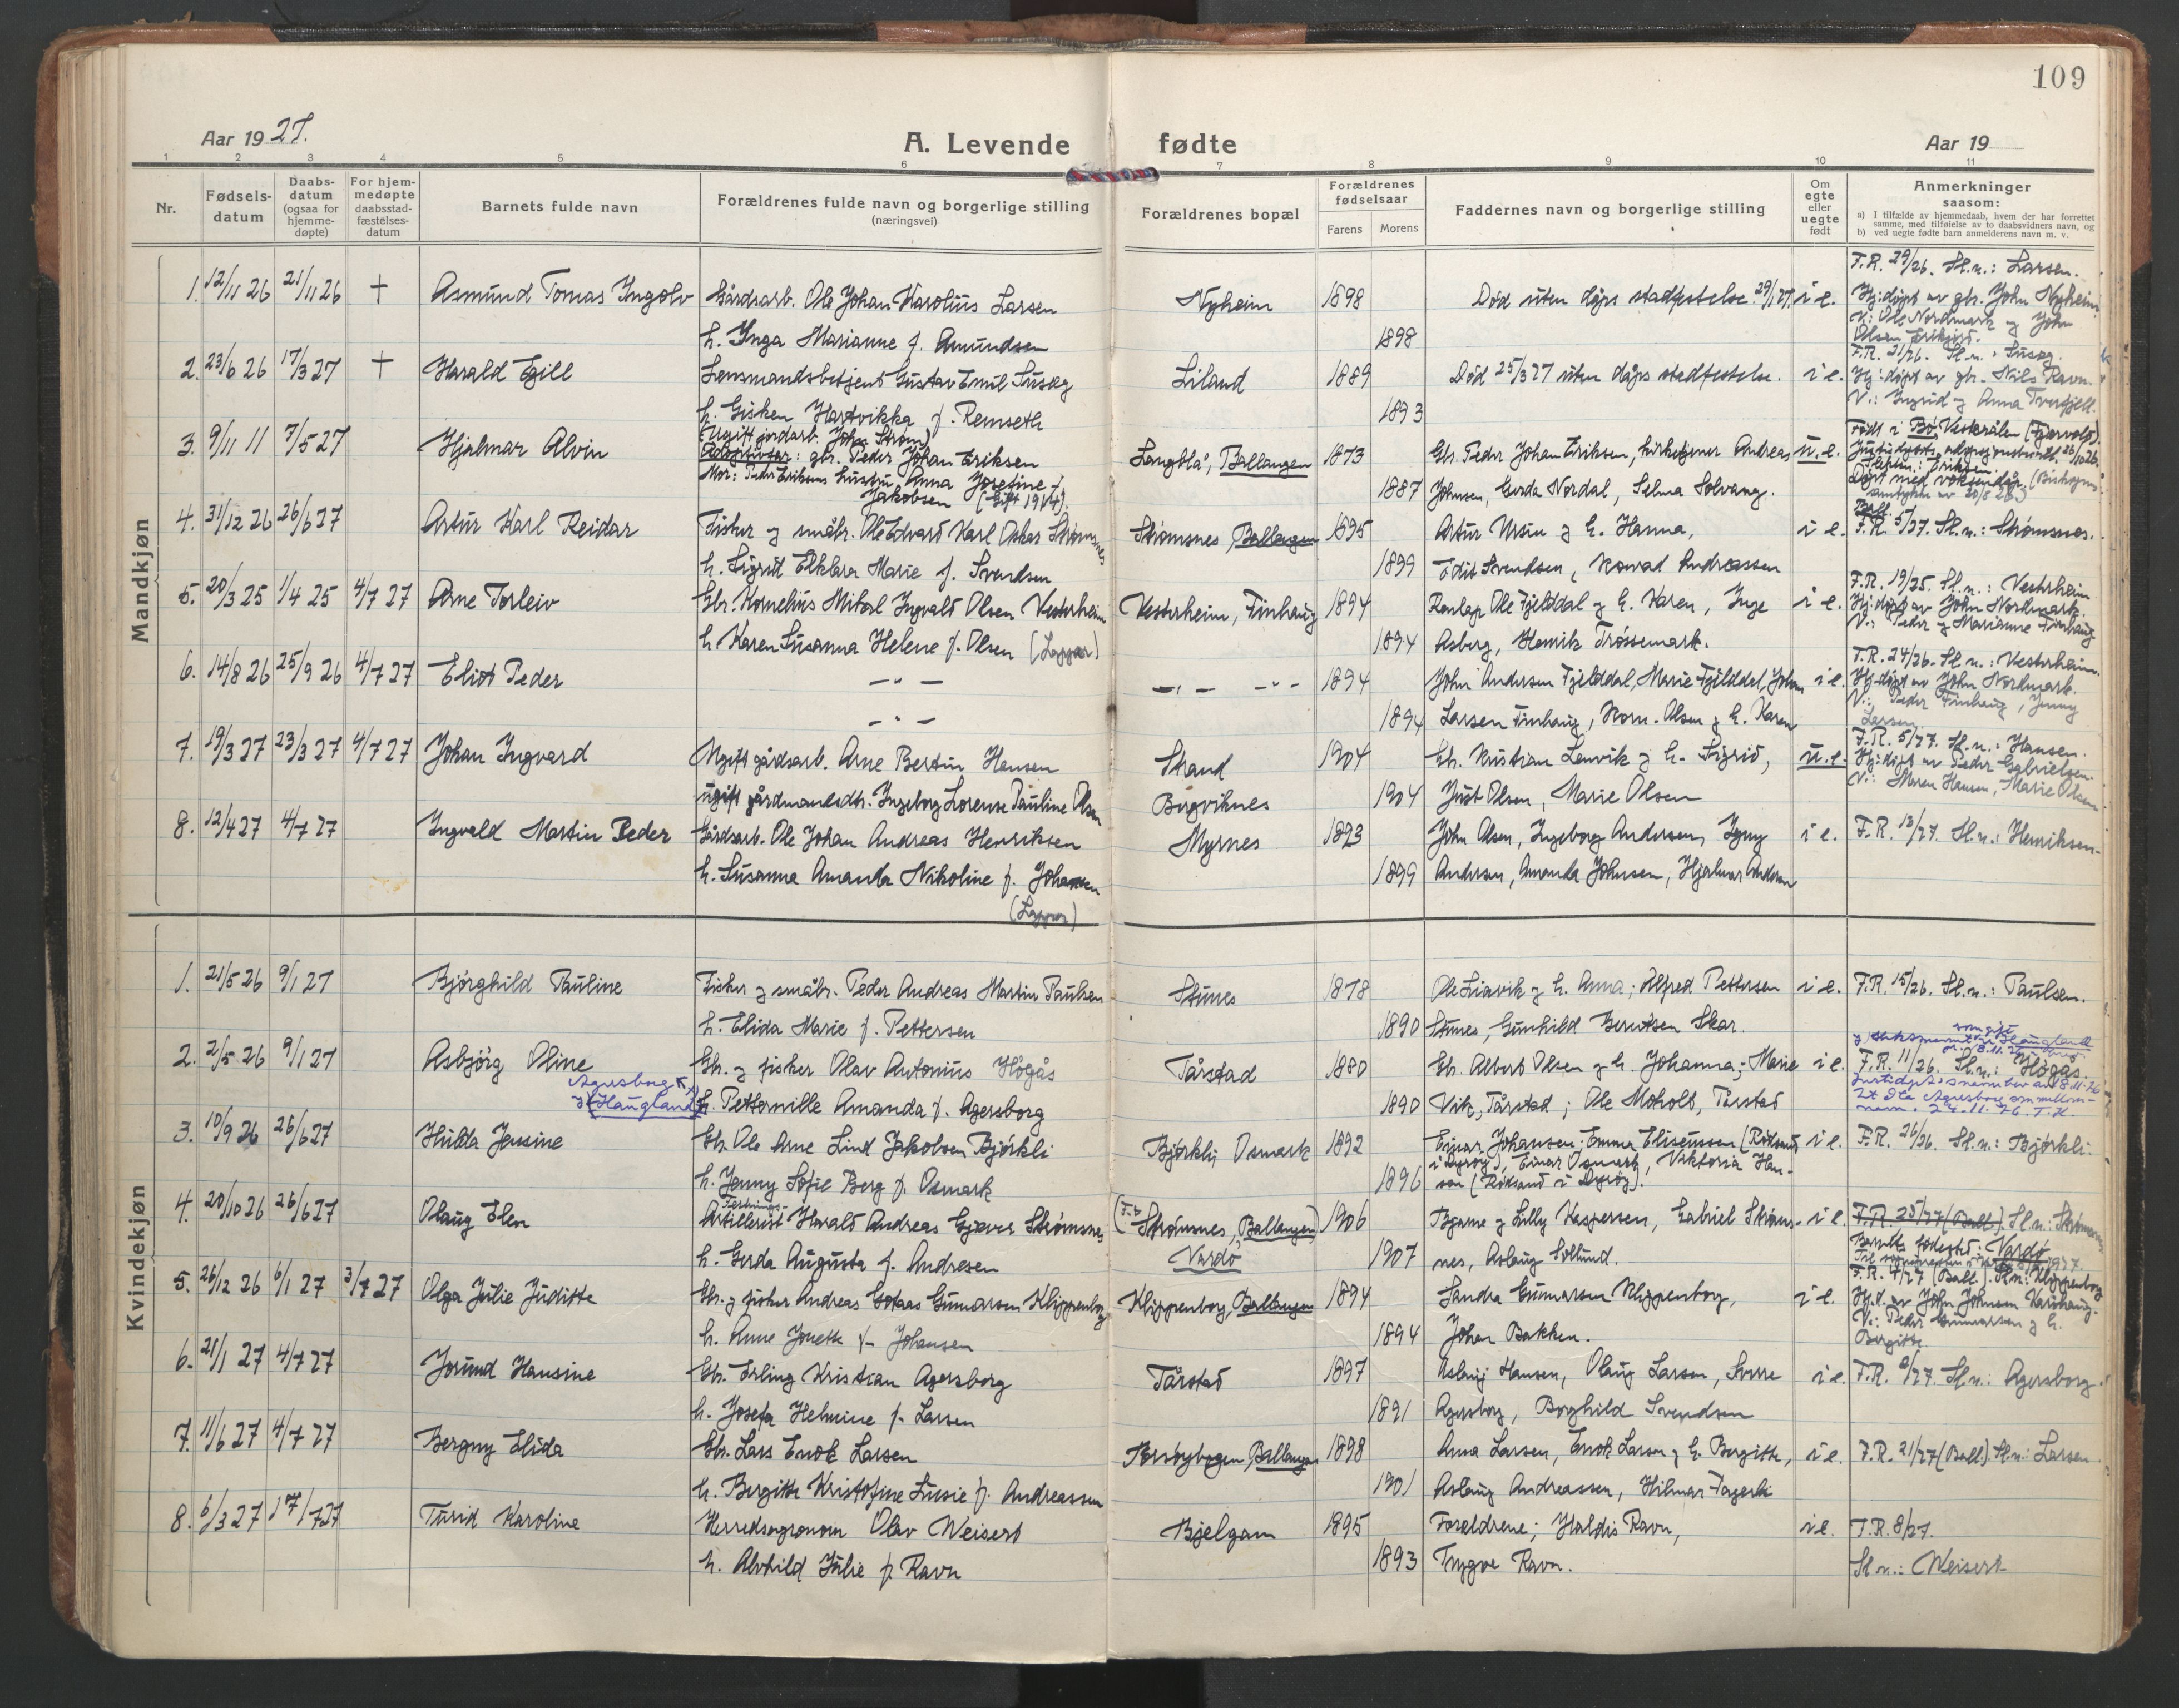 109
Aar 1927.
A. Levende fødte
Aar 19
1 2 3 4 5 6 7 8 9 10 11
Nr. | Fødsels-datum | Daabs-datum (ogsaa for hjemme-døpte) | For hjem-medøpte daabsstad-fæstelses-datum | Barnets fulde navn | Forældrenes fulde navn og borgerlige stilling (næringsvei) | Forældrenes bopæl | Forældrenes fødselsaar Farens Morens | Faddernes navn og borgerlige stilling | Om egte eller uegte født | Anmerkninger saasom: a) I tilfælde av hjemmedaab, hvem der har forrettet samme, med tilføielse av to daabsvidners navn, og b) ved uegte fødte barn anmelderens navn m. v.
Mandkjøn
F.R. 29/26. Sl.n.: Larsen.
1. 12/11 26 21/11 26 + Asmund Tomas Ingolv Gårdsarb. Ole Johan Karolius Larsen Nyheim 1898 Død uten dåps stadfestelse 29/1 27. i e. Hj:døpt av gbr. John Nyheim
h. Inga Marianne f. Amundsen 1898 V.: Ole Nordmark og John
Olsen
F.R. 21/26. Sl.n.: Susæg.
2. 23/6 26 17/3 27 + Harald Egill Lensmandsbetjent Gustav Emil Susæg Liland 1889 Død 25/3 27 uten dåps stedfestelse. i e. Hj:døpt av gbr. Nils Ravn.
h. Gisken Hartvikka f. Remseth 1893 V.: Ingrid og Anna Tverfjell.
(Ugift jordarb. Johan Strøm) Født i Bø, Vesterålen
3. 9/11 11 7/5 27 Hjalmar Alvin Adoptivfar: gbr. Peder Johan Eriksen Langblå, Ballangen 1873 Gbr. Peder Johan Eriksen, kirketjener Andreas u.e.
Mor: Peder Eriksens hustru Anna Josefine f. 1887 Johnsen, Gerda Nordal, Selma Solvang. Eriksen.
Jakobsen (Gift 1914).
4. 31/12 26 26/6 27 Artur Karl Reidar Fisker og småbr. Ole Edvard Karl Oskar Strømsnes Strømsnes, Ballangen 1895 Artur Ursin og h. Hanna, i e. F.R. 5/27. Sl.n.: Strømsnes.
h. Sigrid Elklara Marie f. Svendsen 1899 Edit Svendsen, Konrad Andreassen
F.R. 19/25. Sl.n.: Vesterheim
5. 20/3 25 1/4 25 4/7 27 Arne Torleiv Gbr. Kornelius Mikal Ingvald Olsen Vesterheim Vesterheim, Finhaug 1894 Ole Fjelddal og h. Karen, Inge i e. Hj:døpt av John Nordmark.
h. Karen Susanna Helene f. Olsen (Lapper) 1894 Asberg, Henrik Trøssemark. V.: Peder og Marianne Finhaug
F.R. 24/26. Sl.n.: Vesterheim.
6. 14/8 26 25/9 26 4/7 27 Eliot Peder — " — — " — — " — 1894 John Andersen Fjelddal, Marie Fjelddal, Johan i e. Hj:døpt av John Nordmark.
— " — 1894 Larsen Finhaug, Korn. Olsen og h. Karen V.: Peder Finhaug, Jenny
Larsen.
F.R. 5/27. Sl.n.: Hansen.
7. 19/3 27 23/3 27 4/7 27 Johan Ingvard Ugift gårdsarb. Arne Bertin Hansen Strand 1904 Gbr. Kristian Lenvik og h. Sigrid, u.e. Hj:døpt av Peder Gabrielsen.
ugift gårdmandsdtr. Ingeborg Lorense Pauline Olsen Bergviknes 1904 Just Olsen, Marie Olsen V.: Maren Hansen, Marie Olsen
8. 12/4 27 4/7 27 Ingvald Martin Peder Gårdsarb. Ole Johan Andreas Henriksen Myrnes 1893 John Olsen, Ingeborg Andersen, Jenny i e. F.R. 13/27. Sl.n.: Henriksen.
h. Susanna Amanda Nikoline f. Johansen 1899 Andersen, Amanda Johnsen, Hjalmar Andersen
(Lapper)
Kvindekjøn
1. 21/5 26 9/1 27 Bjørghild Pauline Fisker og småbr. Peder Andreas Martin Paulsen Stunes 1878 Ole Liavik og h. Anna; Alfred Pettersen i e. F.R. 15/26. Sl.n.: Paulsen.
h. Elida Marie f. Pettersen 1890 Stunes, Gunhild Berntsen Skar.
2. 2/5 26 9/1 27 Asbjørg Oline Gbr. og fisker Olav Antonius Høgås Tårstad 1880 Gbr. Albert Olsen og h. Johanna; Marie i e. F.R. 11/26. Sl.n.: Høgås.
Agersborg
(Haugland) h. Petternille Amanda f. Agersborg 1890 Vik, Tårstad; Ole Moholt, Tårstad
3. 10/9 26 26/6 27 Hulda Jensine Gbr. Ole Arne Lind Jakobsen Bjørkli Bjørkli, Osmark 1892 Einar Johansen; Emma Eliseussen (Röksund i e. F.R. 26/26. Sl.n.: Bjørkli.
h. Jenny Sofie Berg f. Osmark 1896 i Dyrøy), Einar Osmark, Viktoria Han-
sen (Röksund i Dyrøy).
4. 20/10 26 26/6 27 Olaug Elen Artillerist Harald Andreas Gjæver Strømsnes (Strømsnes, Ballangen) 1906 Bjarne og Lilly Kaspersen, Gabriel Strøms- i e. F.R. 25/27 (Ball.). Sl.n.: Strømsnes
h. Gerda Augusta f. Andresen Vardø 1907 nes, Aslaug Sollund. Barnets fødested: Vardø
5. 26/12 26 6/1 27 3/7 27 Olga Julie Juditte Gbr. og fisker Andreas Gotaas Gunnarsen Klippenborg Klippenborg, Ballangen 1894 Sandra Gunnarsen Klippenborg, i e. F.R. 4/27 (Ball.). Sl.n.: Klippenborg
h. Anne Jonette f. Johansen 1894 Johan Bakken. Hj.d. av John Johnsen
V.: Peder Gunnarsen og h.
Bergitte
6. 21/1 27 4/7 27 Jorund Hansine Gbr. Erling Kristian Agersborg Tårstad 1897 Aslaug Hansen, Olaug Larsen, Sverre i e. F.R. 2/27. Sl.n.: Agersborg.
h. Josefa Helmine f. Larsen 1891 Agersborg, Borghild Svendsen
7. 11/6 27 4/7 27 Bergny Elida Gbr. Lars Enok Larsen Forsøybogen, Ballangen 1898 Anna Larsen, Enok Larsen og h. Bergitte, i e. F.R. 21/27 (Ball.) Sl.n.: Larsen
h. Bergitte Kristofine Lusie f. Andreassen 1901 Aslaug Andreassen, Hilmar Fagerli
8. 6/3 27 17/7 27 Turid Karoline Herredsagronom Olav Weisert Bjelgam 1895 Foreldrene; Haldis Ravn, i e. F.R. 8/27.
h. Alvhild Julie f. Ravn 1893 Trygve Ravn. Sl.n.: Weisert